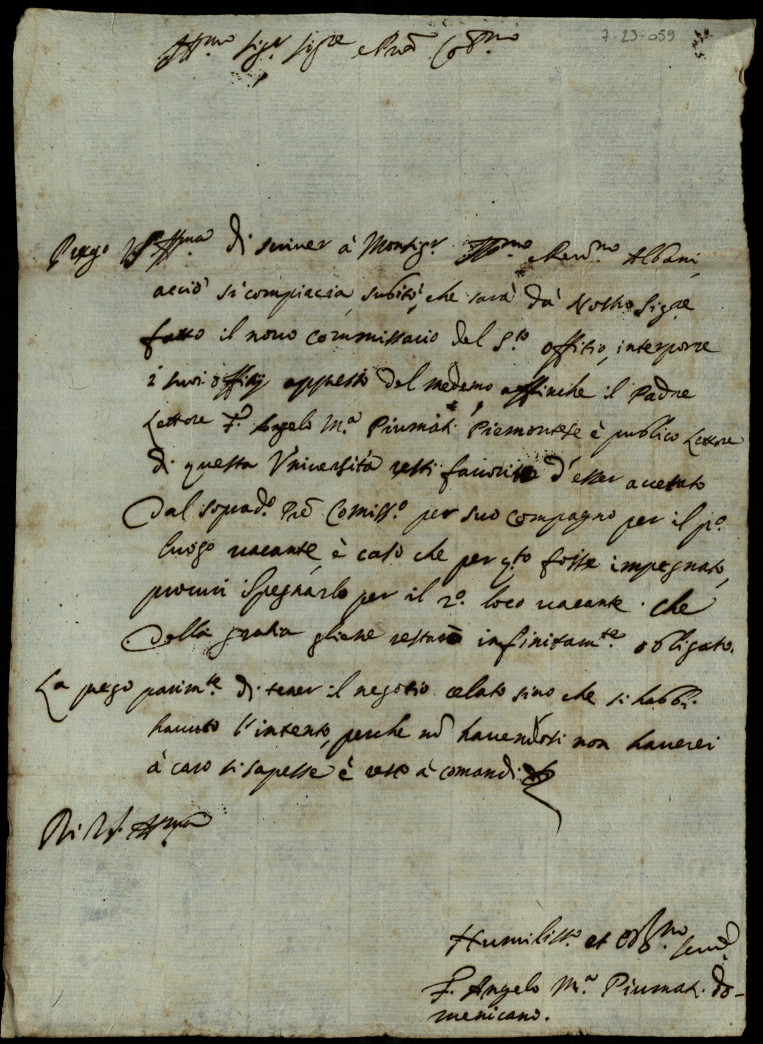 7-23-059
Ill.mo Sig.r Sig.re e Pron Col.mo
Prego VS Ill.ma di scriver à Monsig.r Ill.mo e Rev.mo Albani,
acciò si compiaccia, subito, che sarà da Nostro Sig.re
fatto il novo Commissario del S.to Offitio, interporre
i suoi offitij appresso del medemo affinche il Padre
Lettore F. Angelo M.a Piumati Piemontese è publico Lettore
di questa Università resti favorito d'esser accetato
dal soprad.o Pre Comiss.o per suo Compagno per il p.o
luogo vacante, è caso che per q.to fosse impegnato,
procuri ispegnarlo per il 2.o loco vacante. che
della gratia gliene restarò infinitam.te obligato.
La prego parim.te di tener il negotio celato sino che si habbi
havuto l'intento, perche nō havendosi non haverei
à caro si sapesse è resto à comandi
Di VS. Ill.ma
Humiliss.o et Obl.mo Serv.
F. Angelo M.a Piumati do-
menicano.